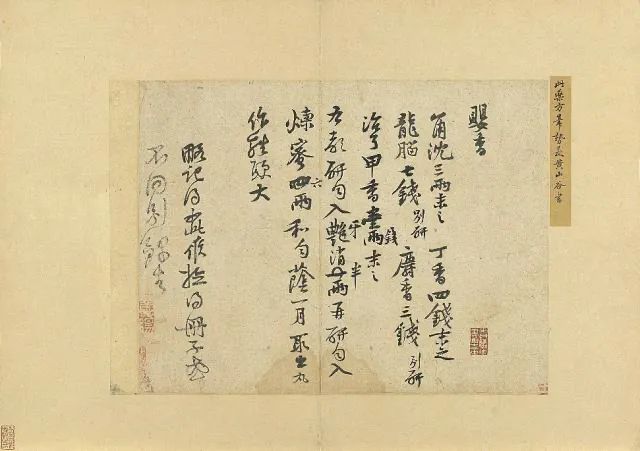 此藥方筆勢是黃山谷書
嬰香
角沉三兩末之 丁香四錢末之
龍腦七錢別研 麝香三錢別研
治了甲香壹錢末之
右都研勻入牙消半兩再研勻入
煉蜜六兩和勻蔭一月取出丸
作雞頭大
略記得如此候檢得冊子或
不同別錄去